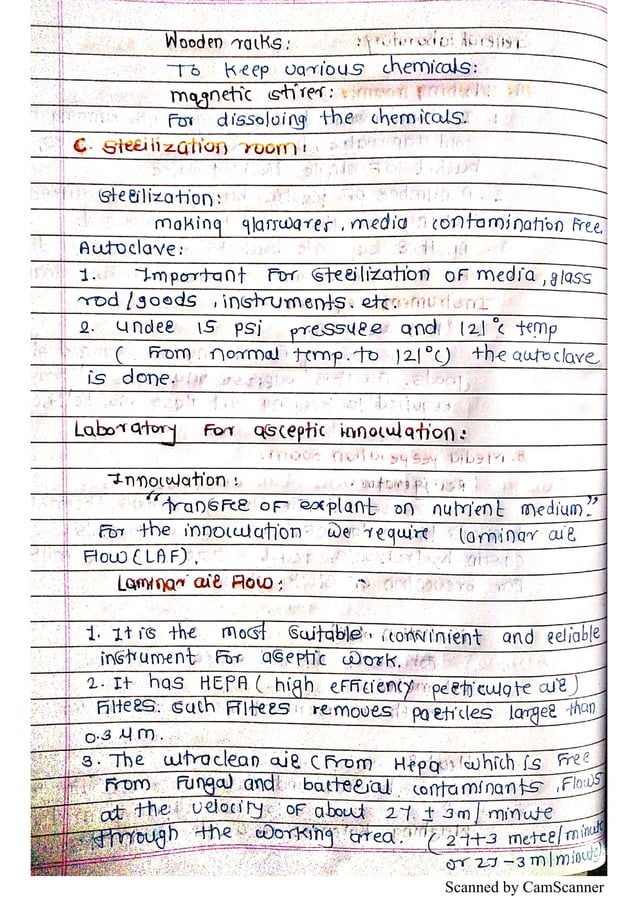 Wooden racks:
To keep various chemicals:
magnetic stirer:
For dissoluing the chemicals.
C. Sterilization room:
Sterilization:
making glasswares, media contamination Free.
Autoclave:
1. Important For Sterilization OF media, glass
rod/goods, instruments. etc.
2. under 15 psi pressure and 121°c temp
( From normal temp. to 121°C) the autoclave
is done.
Laboratory For asceptic innoculation:
Innoculation:
"transfer OF explant on nutrient medium."
For the innoculation we require laminar air
Flow (LAF).
Laminar air Flow:
1. It is the most suitable, convinient and reliable
instrument For aseptic work.
2. It has HEPA ( high efficiency perticulate air)
Filters. Such Filters removes particles larger than
0.3 µm.
3. The ultraclean air (From Hepa which is Free
From Fungal and bacterial contaminants, Flows
at the velocity OF about 27 ± 3m/ minute
through the working area. (27+3 meter/minute
or 27-3m/minute)
Scanned by CamScanner